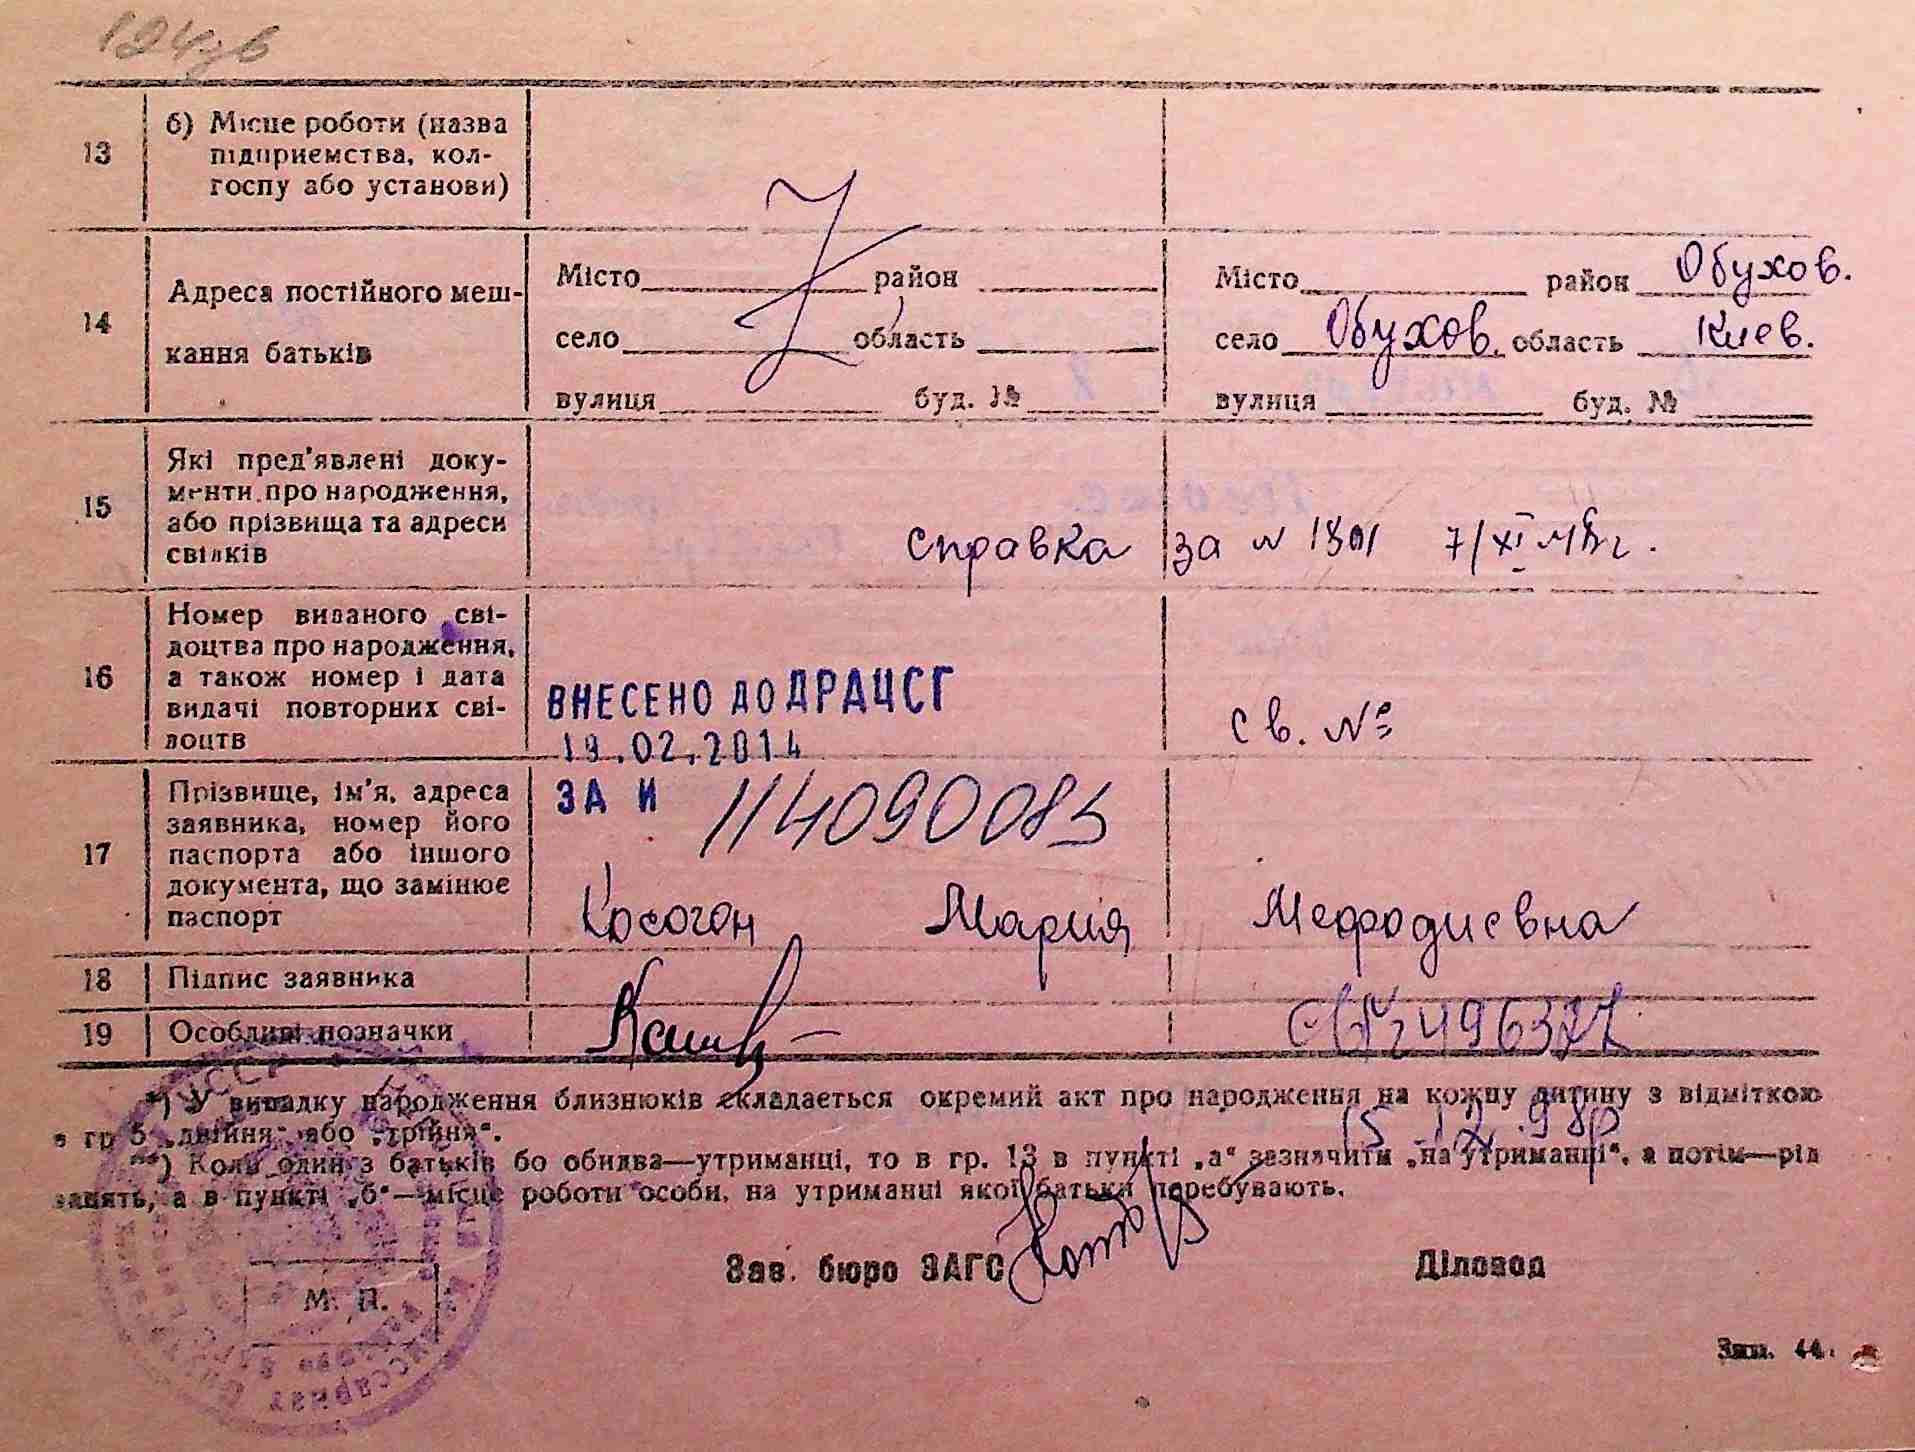 124зв
13
б) Місце роботи (назва
підприємства, кол-
госпу або установи)
14
Адреса постійного меш-
кання батьків
Місто район
село область
вулиця буд. №
Місто район Обухов.
село Обухов. область Киев.
вулиця буд. №
15
Які пред'явлені доку-
менти про народження,
або прізвища та адреси
свідків
справка за N 7/XI
16
Номер виданого сві-
доцтва про народження,
а також номер і дата
видачі повторних сві-
доцтв
ВНЕСЕНО ДО ДРАЦСГ
19.02.2014
ЗА И 114090083
св. №
17
Прізвище, ім'я, адреса
заявника, номер його
паспорта або іншого
документа, що замінює
паспорт
Косогон Мария Мефодиевна
18
Підпис заявника
19
Особливі позначки
496327
*) У випадку народження близнюків складається окремий акт про народження на кожну дитину з відміткою
в гр 5 „двійня“ або „трійня“.
**) Коли один з батьків бо обидва—утриманці, то в гр. 13 в пункті „а“ зазначити „на утриманці“, а потім—рід
занять, а в пункті „б“—місце роботи особи, на утриманці якої батьки перебувають.
Зав. бюро ЗАГС
Діловод
М. П.
Зам. 44